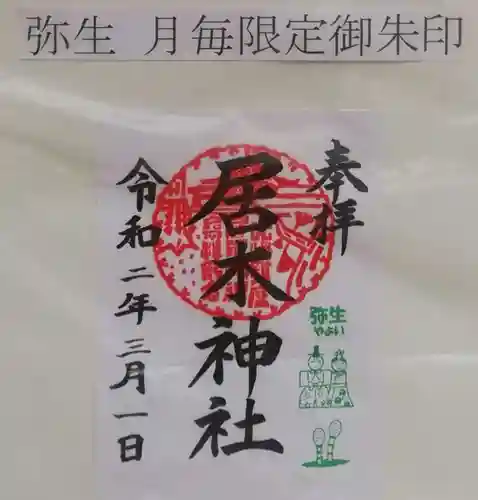 弥生 月毎限定御朱印
奉拝
居木神社
令和二年三月一日
弥生
やよい